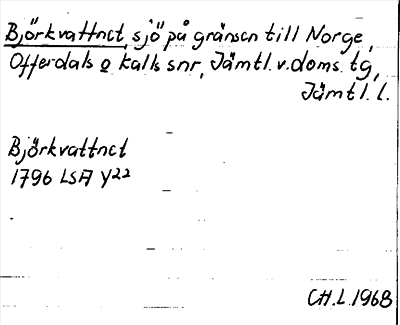 Björkvattnet, sjö på gränsen till Norge,
Offerdals o Kalls snr, Jämtl.v.doms.tg,
Jämtl.l.
Björkvattnet
1796 LSA Y22
CH.L.1968